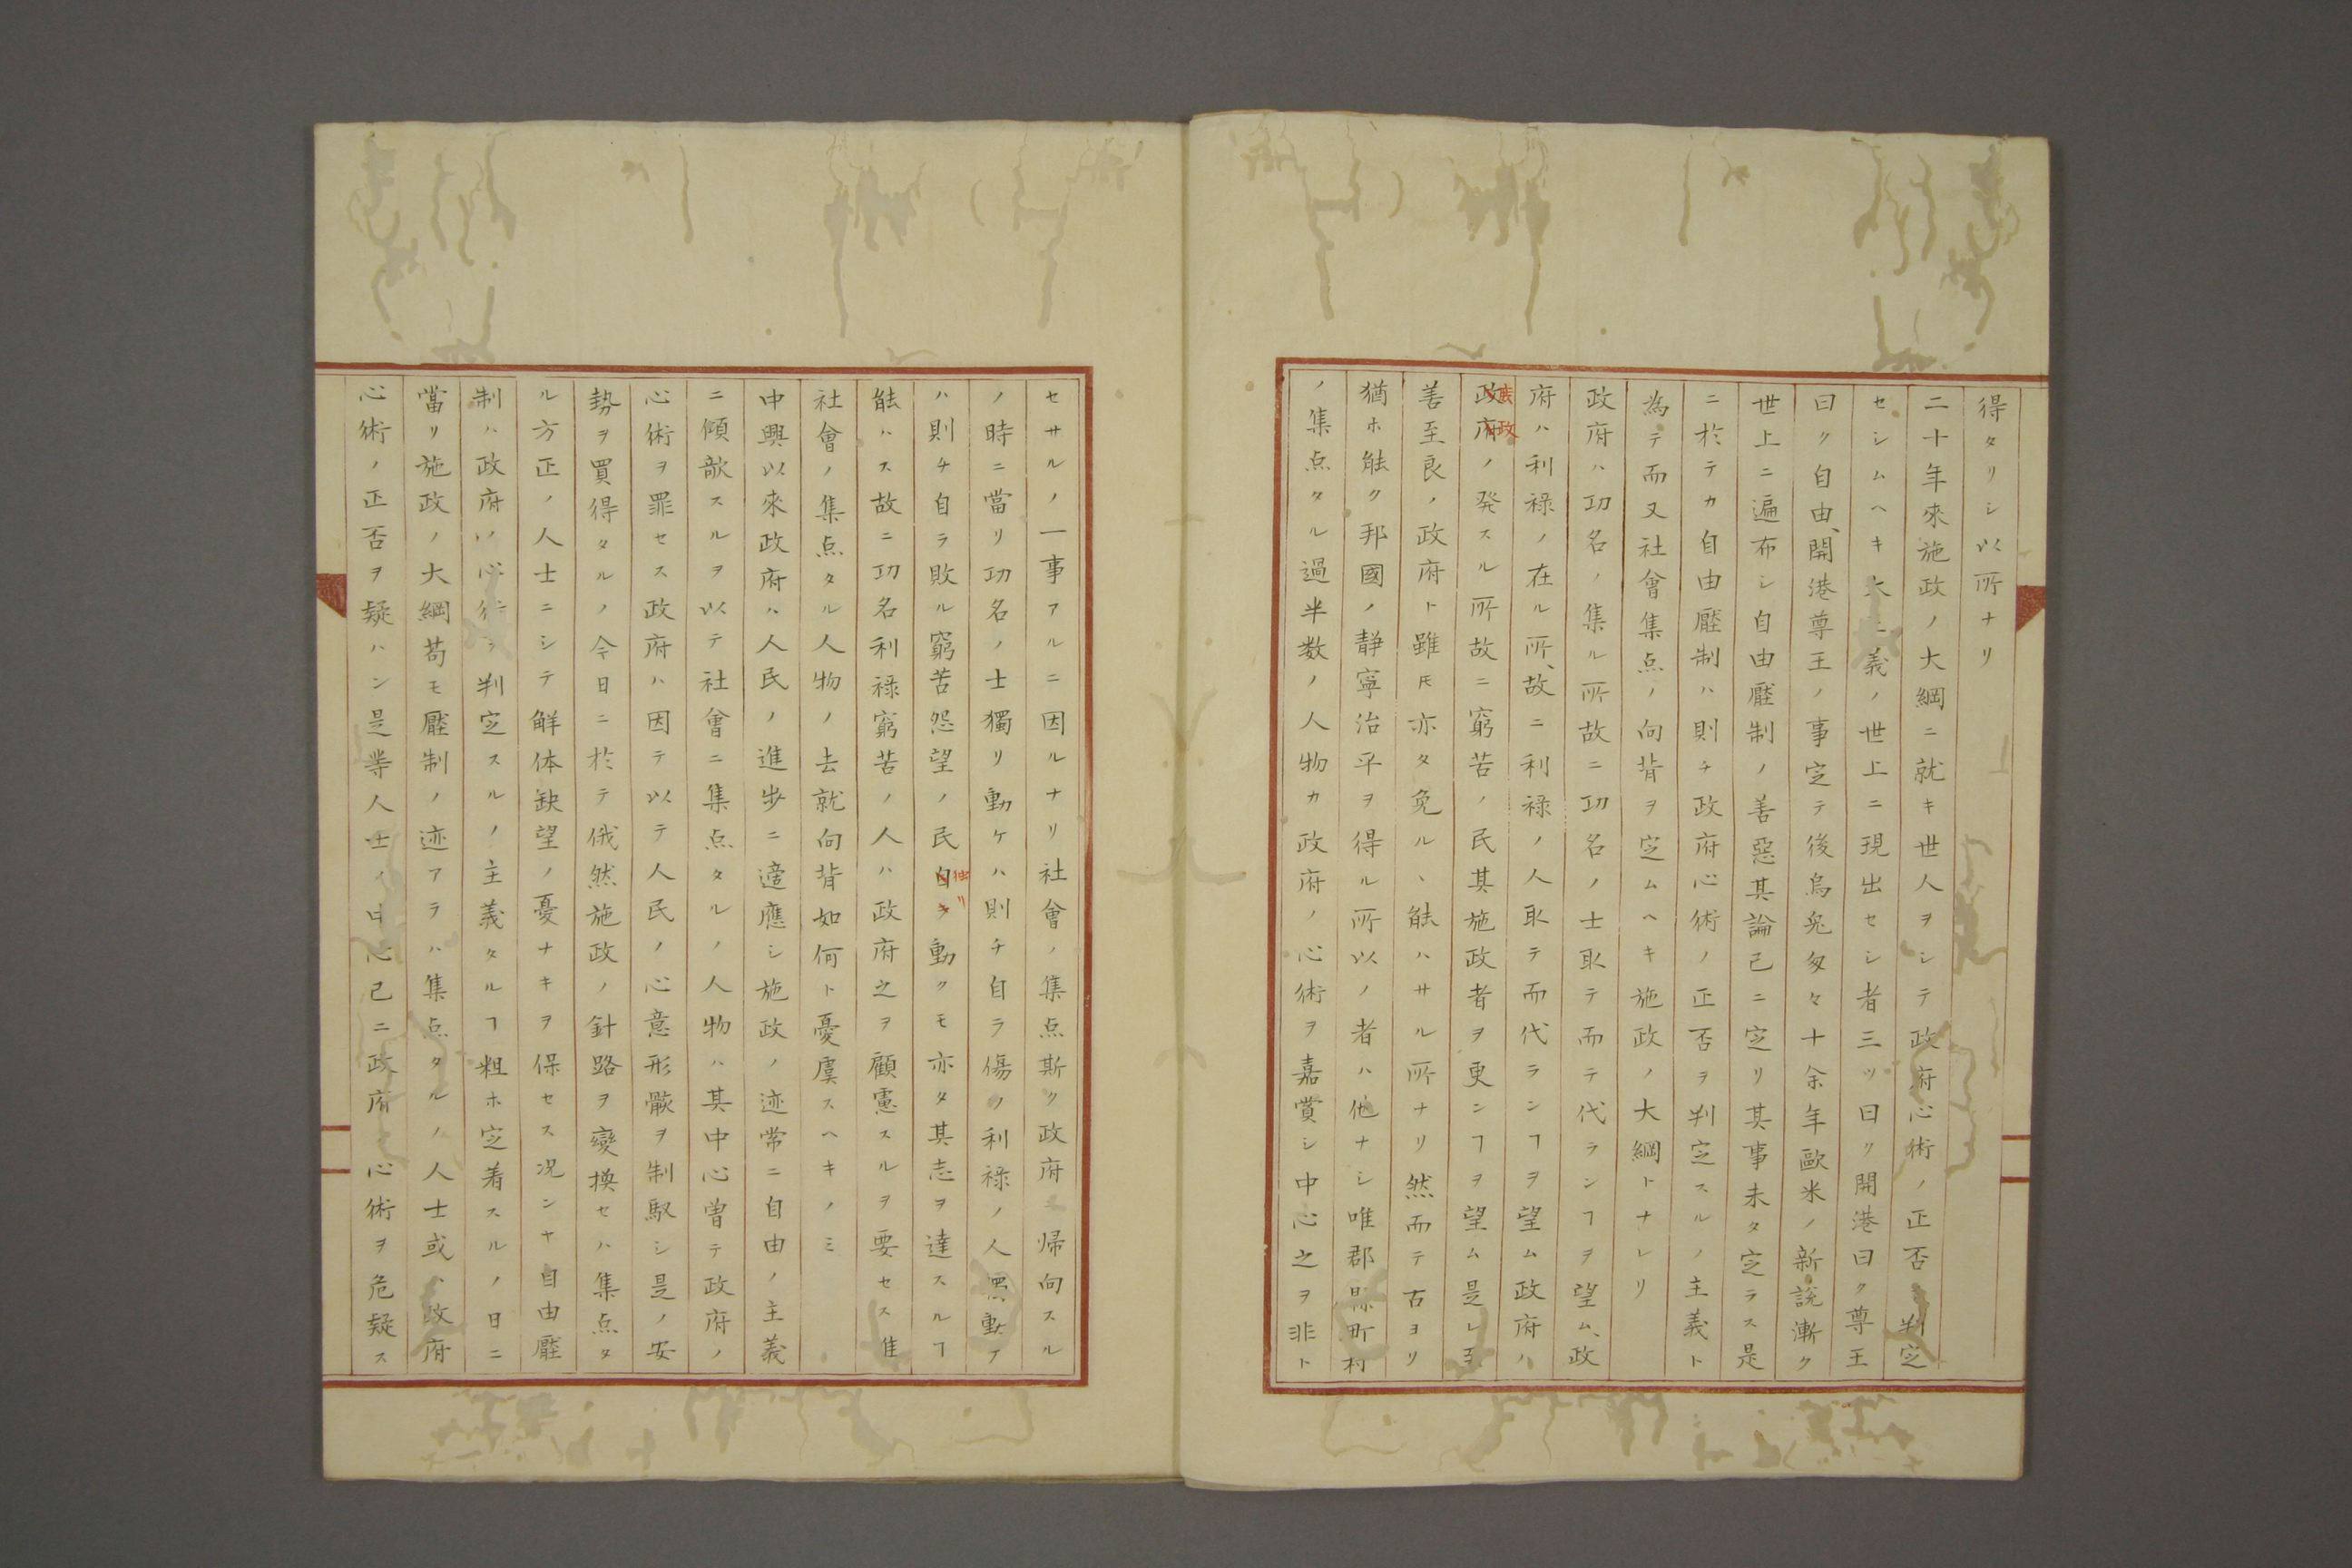 得タリシ以所ナリ
二十年來施政ノ大綱ニ就キ世人ヲシテ政府心術ノ正否ヲ判定
セシムヘキ大主義ノ世上ニ現出セシ者三ツ曰ク開港曰ク尊王
曰ク自由、開港尊王ノ事定テ後烏兎匆々十余年歐米ノ新説漸ク
世上ニ遍布シ自由壓制ノ善惡其論已ニ定リ其事未タ定ラス是
ニ於テカ自由壓制ハ則チ政府心術ノ正否ヲ判定スルノ主義ト
為テ而又社會集点ノ向背ヲ定ムヘキ施政ノ大綱トナレリ
政府ハ功名ノ集ル所故ニ功名ノ士取テ而テ代ランヿヲ望ム、政
府ハ利禄ノ在ル所、故ニ利禄ノ人取テ而代ランヿヲ望ム政府ハ
政府ノ発スル所故ニ窮苦ノ民其施政者ヲ更ンヿヲ望ム是レ至
善至良ノ政府ト雖モ亦タ免ルヽ能ハサル所ナリ然而テ古ヨリ
猶ホ能ク邦國ノ静寧治平ヲ得ル所以ノ者ハ他ナシ唯郡縣町村
ノ集点タル過半数ノ人物カ政府ノ心術ヲ嘉賞シ中心之ヲ非ト
セサルノ一事アルニ因ルナリ社會ノ集点斯ク政府ニ帰向スル
ノ時ニ當リ功名ノ士獨リ動ケハ則チ自ラ傷ク利禄ノ人獨動ケ
ハ則チ自ラ敗ル窮苦怨望ノ民独リ動クモ亦タ其志ヲ達スルヿ
能ハス故ニ功名利禄窮苦ノ人ハ政府之ヲ顧慮スルヲ要セス唯
社會ノ集点タル人物ノ去就向背如何ト憂虞スヘキノミ
中興以來政府ハ人民ノ進歩ニ適應シ施政ノ迹常ニ自由ノ主義
ニ傾欹スルヲ以テ社會ニ集点タルノ人物ハ其中心曽テ政府ノ
心術ヲ罪セス政府ハ因テ以テ人民ノ心意形骸ヲ制馭シ是ノ安
勢ヲ買得タルノ今日ニ於テ俄然施政ノ針路ヲ變換セハ集点タ
ル方正ノ人士ニシテ解体缺望ノ憂ナキヲ保セス况ンヤ自由壓
制ハ政府ノ心術ヲ判定スルノ主義タルヿ粗ホ定着スルノ日ニ
當リ施政ノ大綱苟モ壓制ノ迹アラハ集点タルノ人士或ハ政府
心術ノ正否ヲ疑ハン是等人士ノ中心已ニ政府ノ心術ヲ危疑ス